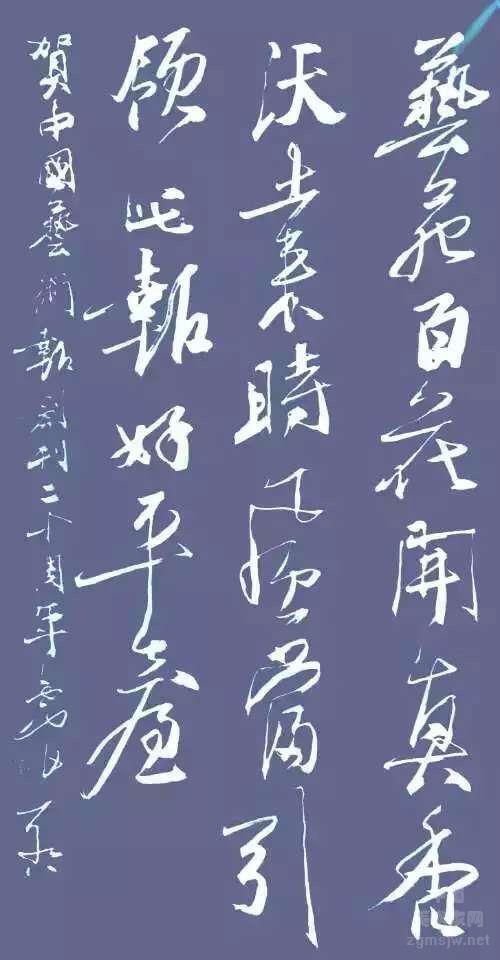 藝苑百花開真香
沃土來時風引
領此報好平臺
賀中國藝術報創刊二十周年
zgmsjw.net